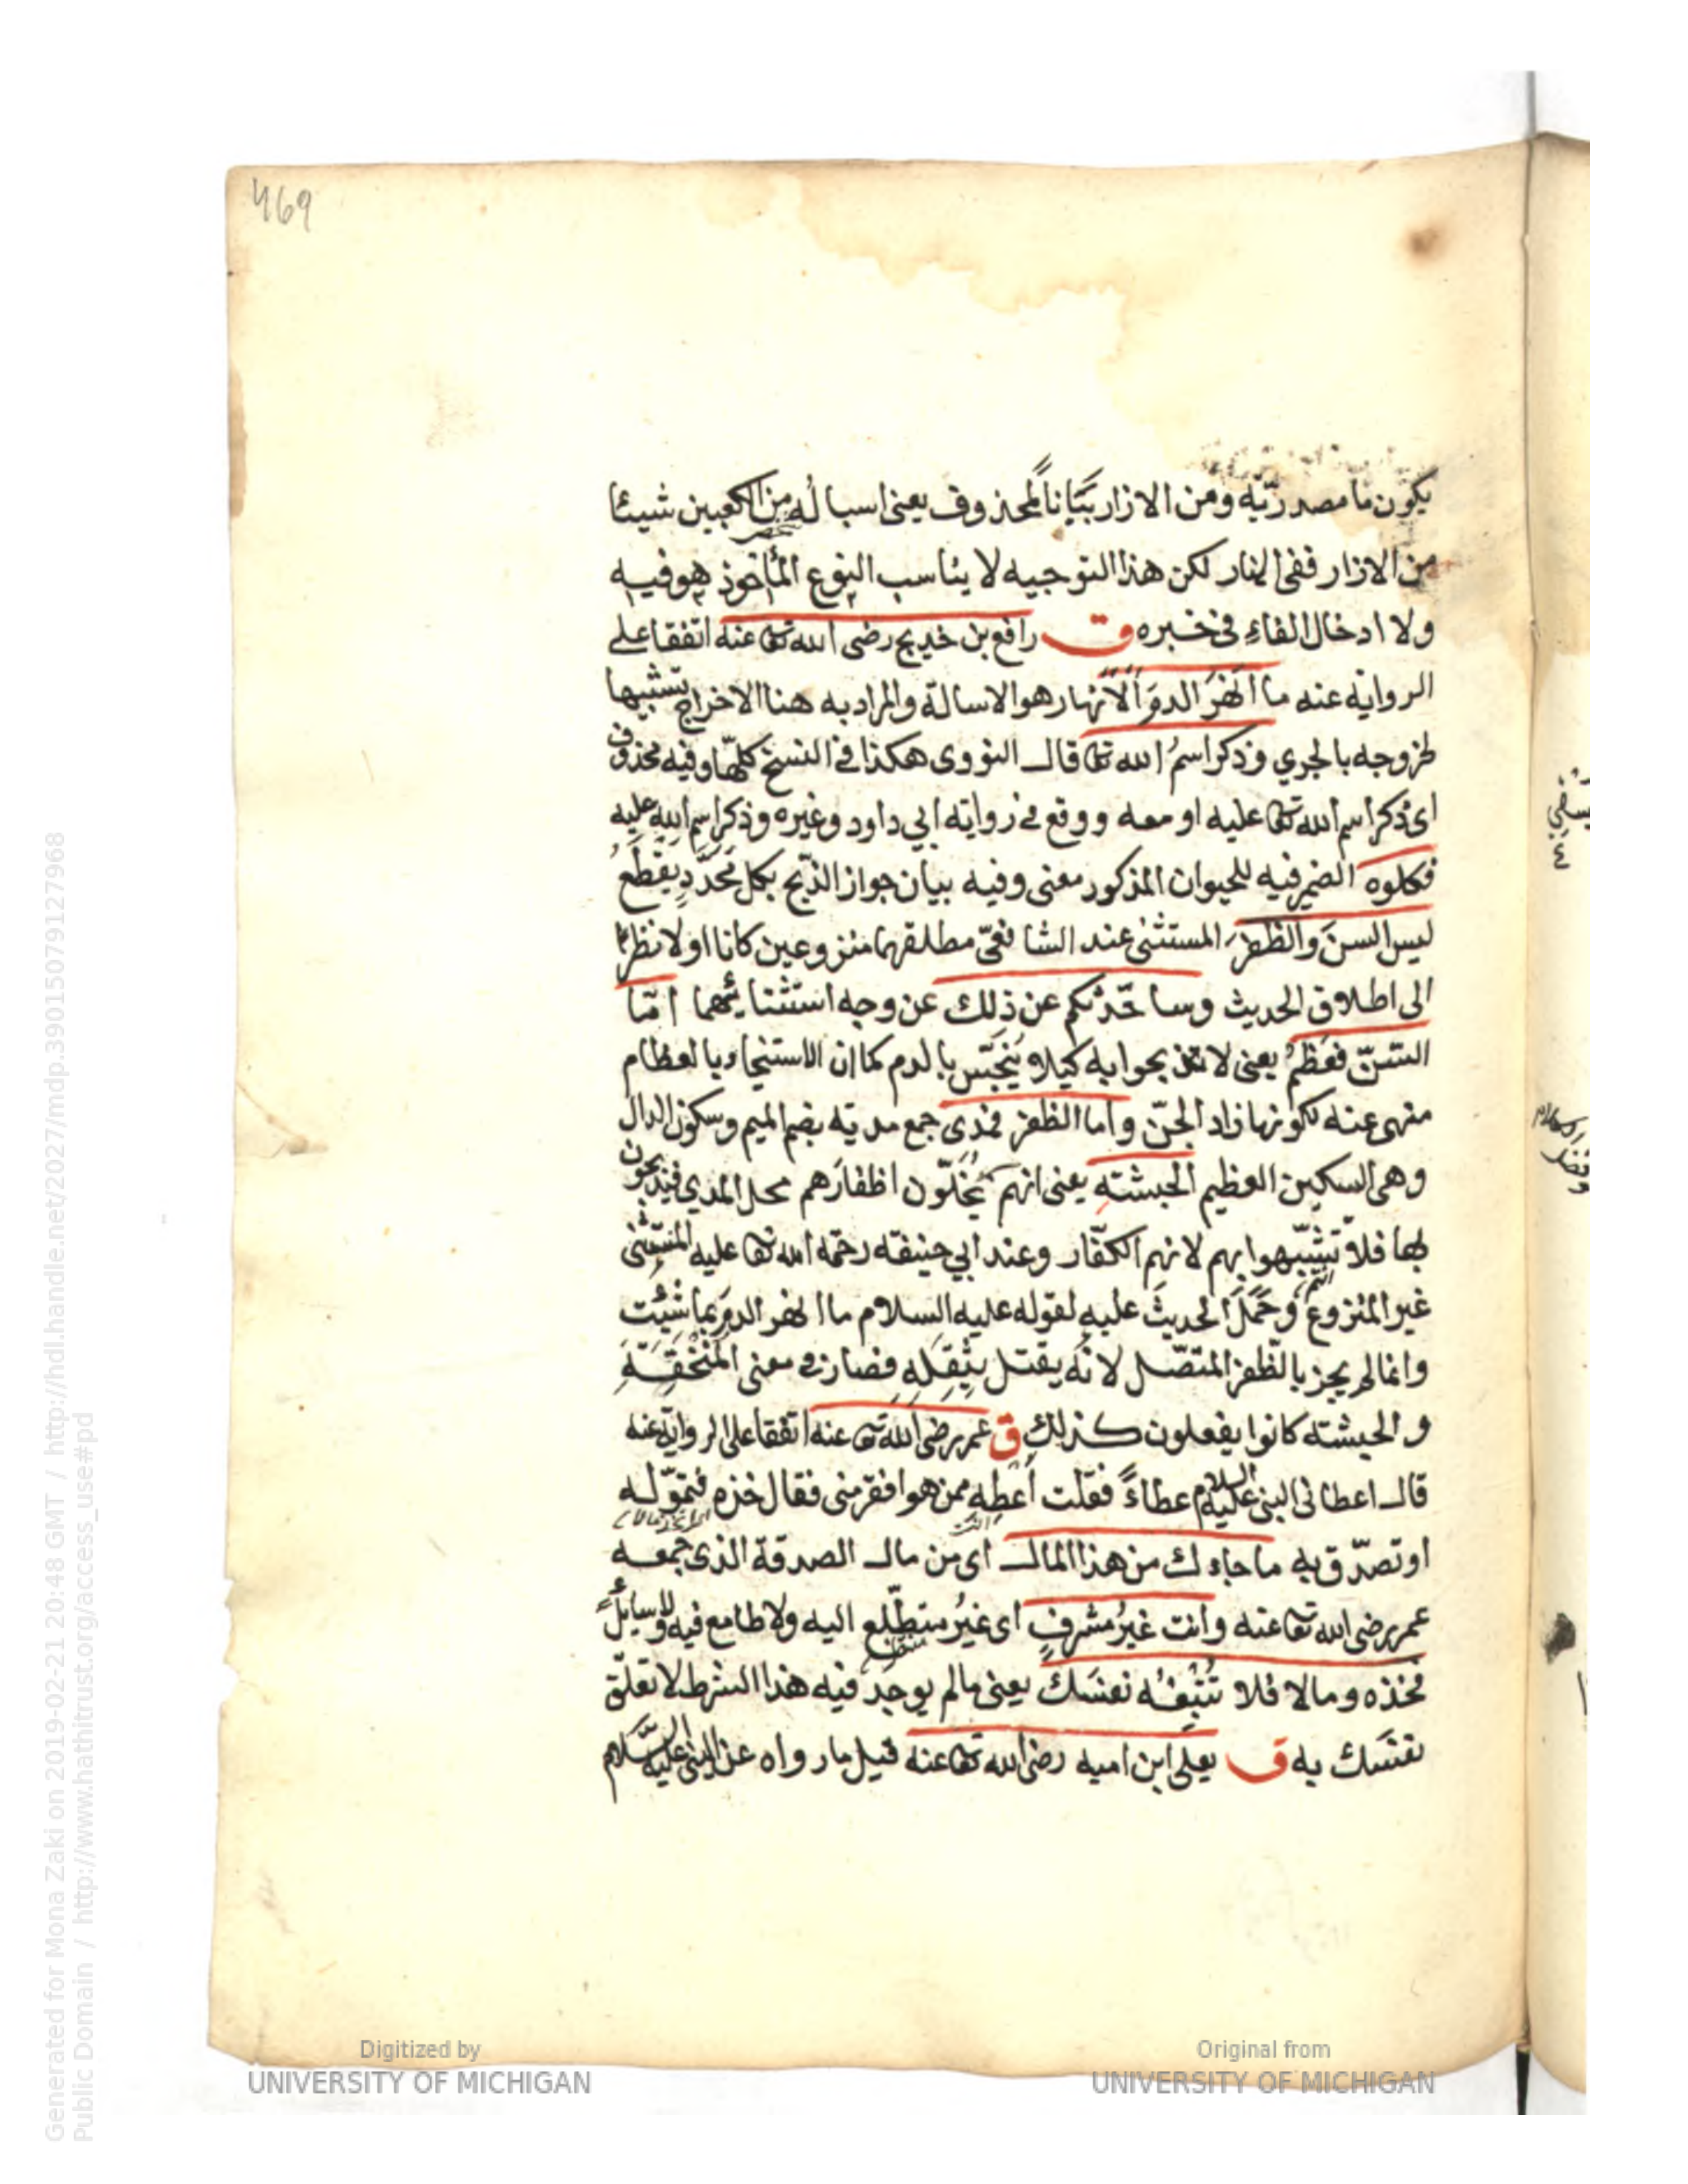 469
يكون ما مصدريّة ومن الازار بَيَاناً لمحذوف يعنى اسبا لُه من الكعبين شيئا
من الازار ففى النار لكن هذا التوجيه لا يناسب النوع المأخوذ هو فيه
ولا ادخال الفاء فى خبره ق رافع بن خديج رضى الله تعا عنه اتفقا على
الرواية عنه ما انهَرَ الدمَ الانهار هو الاسالة والمراد به هنا الاخراج تشبيها
لخروجه بالجري وذكر اسمُ الله تعا قال النووى هكذا فى النسخ كلّها وفيه محذوف
اى ذكر اسم الله تعا عليه او معه ووقع فى رواية ابي داود وغيره وذكر اسم الله عليه
فكلوه الضمير فيه للحيوان المذكور معنى وفيه بيان جواز الذبح بكل محدَّدٍ يقطَعُ
ليس السنَ والظفرَ المستثنى عند الشافعىّ مطلقهما منزوعين كانا اولا نظرا
الى اطلاق الحديث وساحّدثكم عن ذلك عن وجه استثنائهما امّا
السّنّ فعَظمٌ يعنى لا تذبحوا به كيلا يُنجَّس بالدم كما ان الاستنجاء بالعظام
منهى عنه لكونها زاد الجنّ واما الظفر فمُدى جمع مدية بضم الميم وسكون الدال
وهى السكين العظيم الحبشة يعنى انهم يُخلّون اظفارَهم محل المدي فيذبحون
بها فلا تشبّهوا بهم لانهم الكفّار وعند ابي حنيفة رحمة الله تعا عليه المستثنى
غير المنزوع وحَمَلَ الحديثَ عليه لقوله عليه السلام ما انهر الدمَ بما شئت
وانما لم يجز بالظفر المتصّل لانّه يقتل بثِقَلِهِ فصار فى معنى المنخَنِقَةِ
والحبشة كانوا يفعلون كذلك ق عمر رضى الله تعا عنه اتفقا على الرواية عنه
قال اعطانى النبى عليه السلام عطاءً فقلت أعطِه ممن هو افقر منى فقال خذه فتموّله
او تصدّق به ما جاءك من هذا المال اى من مال الصدقة الذى جمعه
عمر رضى الله تعا عنه وانت غيرُ مشرفٍ اى غيرُ متطلّع اليه ولا طامع فيه ولا سائلٌ
فخذه ومالا فلا تُتبِعْهُ نفسَك يعنى مالم يوجد فيه هذا الشرط لا تعلق
نفسَك به ق يعلى ابن اميه رضى الله تعا عنه قيل ما رواه عن النبى عليه السلام
Digitized by
UNIVERSITY OF MICHIGAN
Original from
UNIVERSITY OF MICHIGAN
Generated for Mona Zaki on 2019-02-21 20:48 GMT / http://hdl.handle.net/2027/mdp.39015079127968
Public Domain / http://www.hathitrust.org/access_use#pd